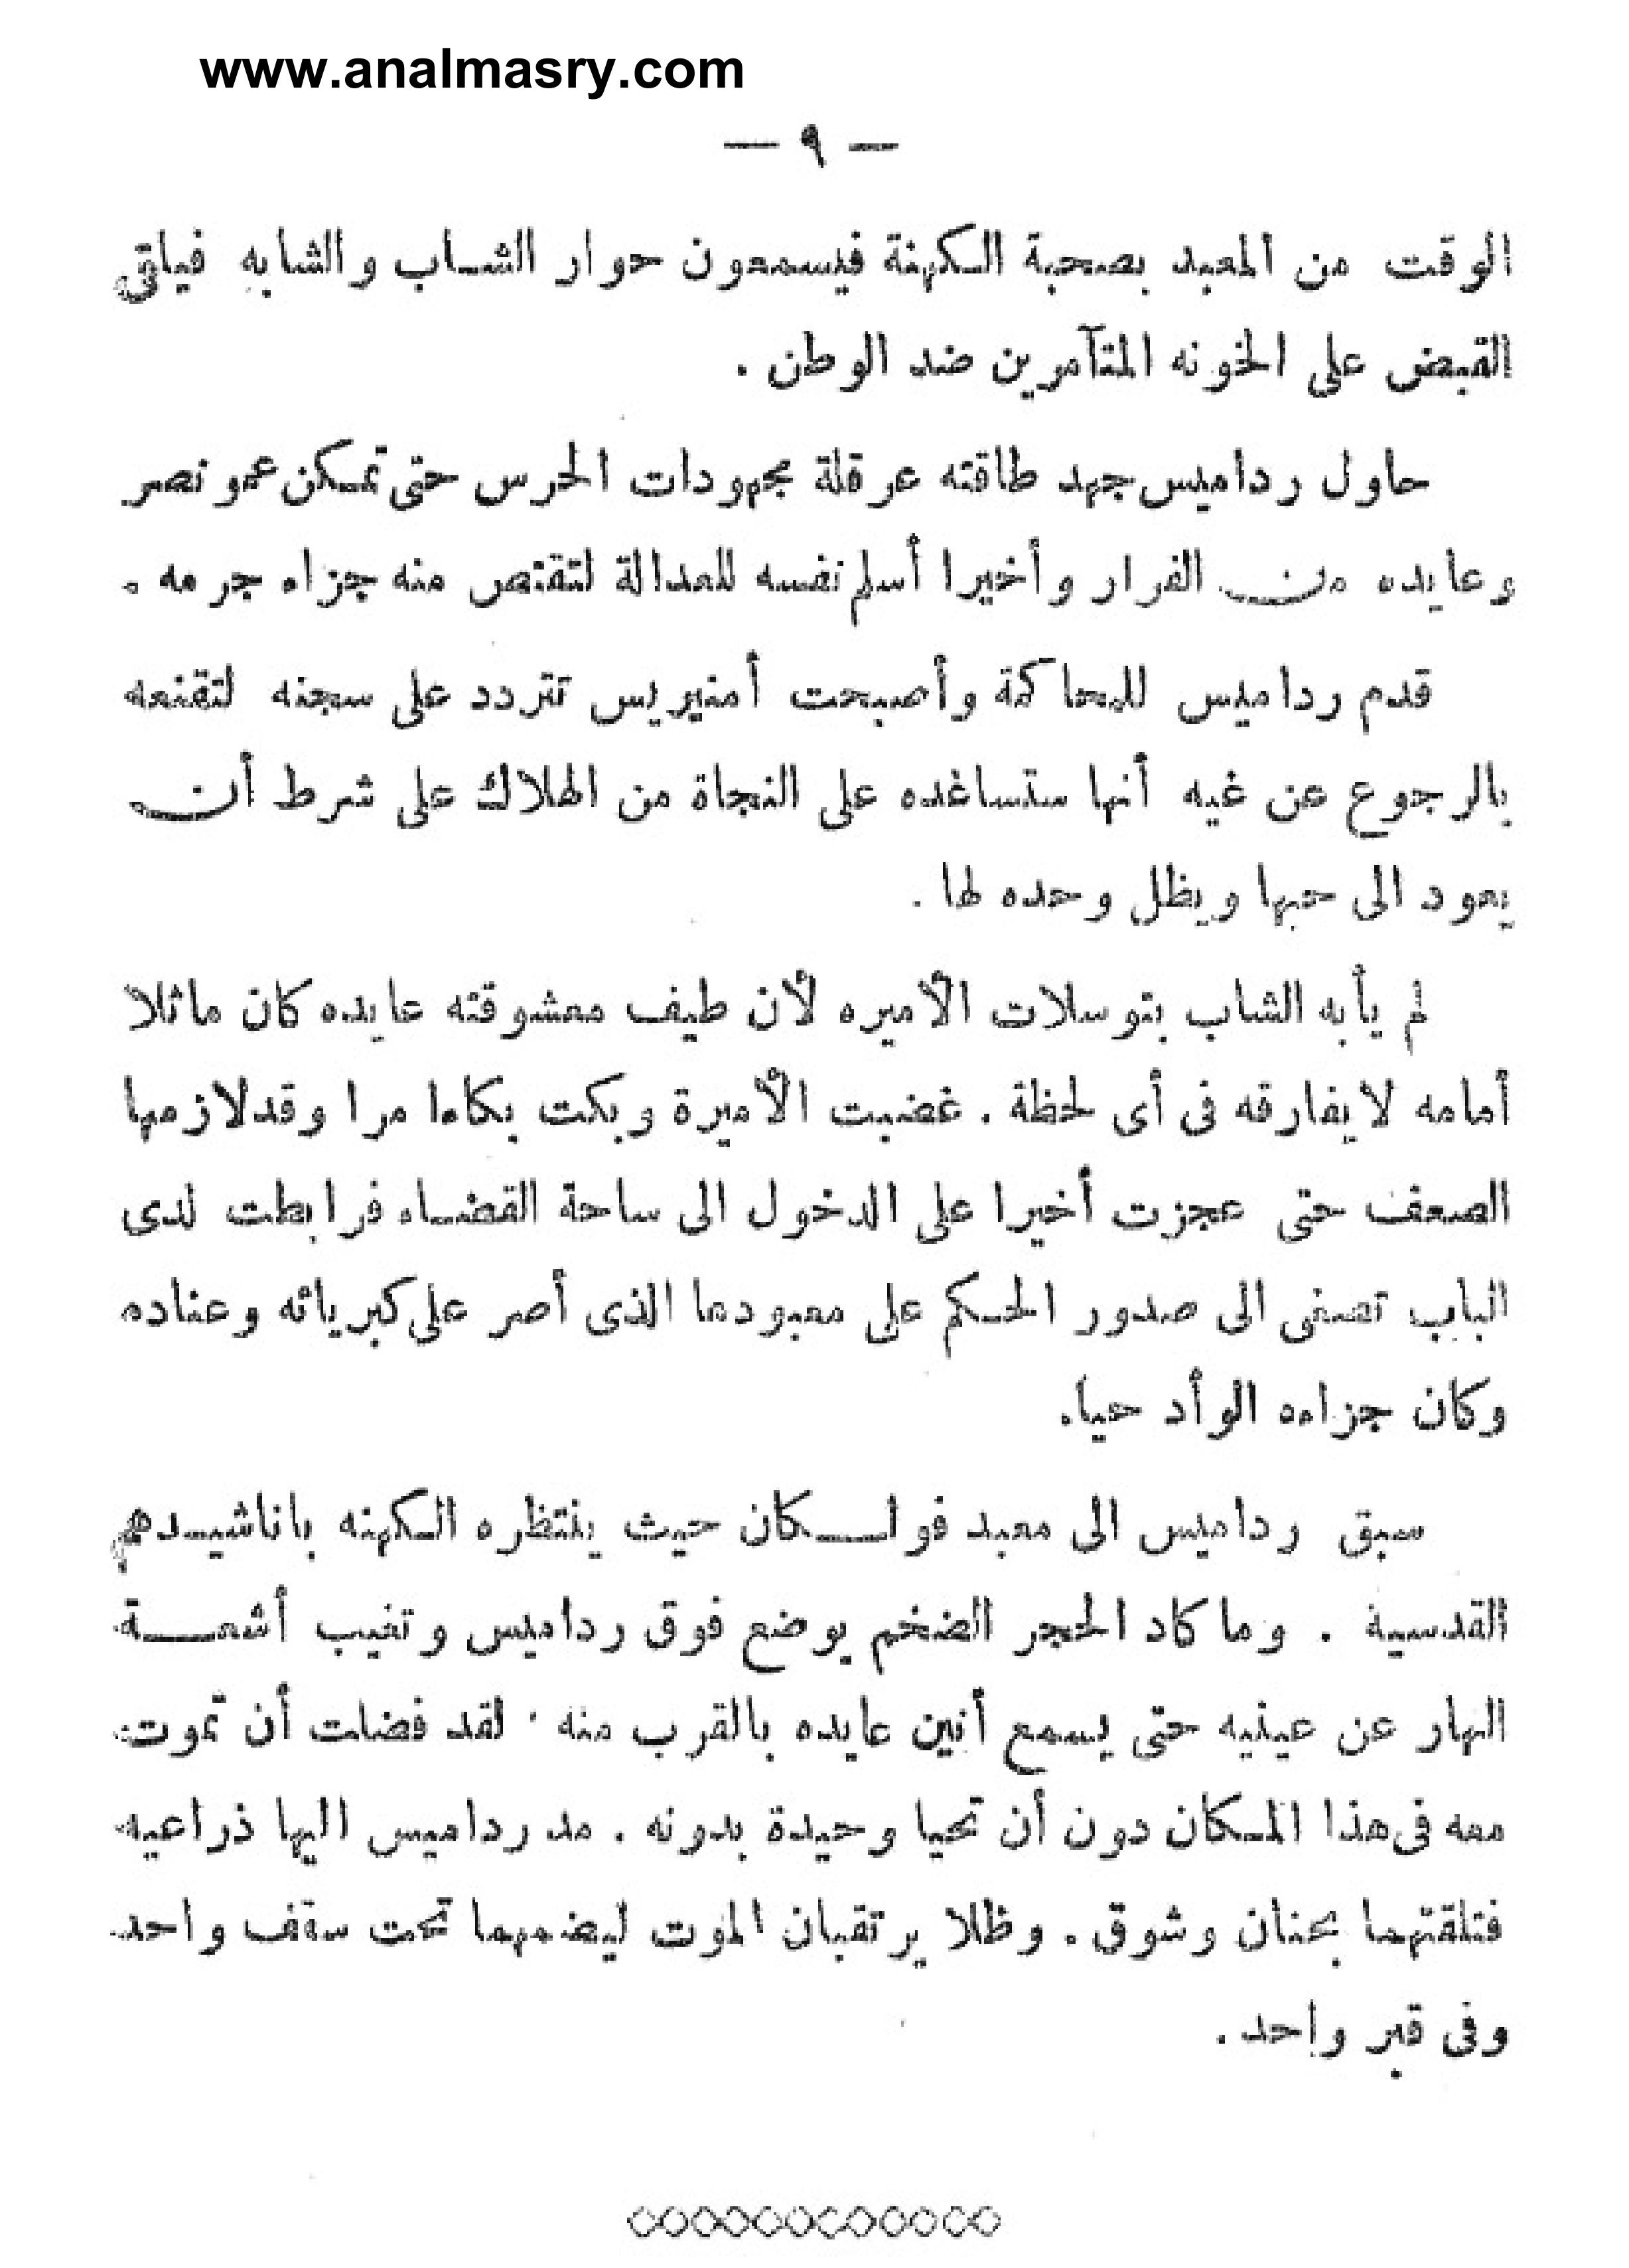 www.analmasry.com
— ٩ —
الوقت من المعبد بصحبة الكهنة فيسمعون حوار الشاب والشابه فياتى
القبض على الخونه المتآمرين ضد الوطن .
حاول رداميس جهد طاقته عرقلة مجهودات الحرس حتى تمكن عمو نصر
وعايده من الفرار وأخيرا أسلم نفسه للعدالة لتقتص منه جزاء جرمه .
قدم رداميس للمحاكمة وأصبحت أمنيريس تتردد على سجنه لتقنعه
بالرجوع عن غيه أنها ستساعده على النجاة من الهلاك على شرط أن
يعود الى حبها ويظل وحده لها .
لم يأبه الشاب بتوسلات الأميره لأن طيف معشوقته عايده كان ماثلا
أمامه لا يفارقه فى أى لحظة . غضبت الأميرة وبكت بكاءا مرا وقد لازمها
الضعف حتى عجزت أخيرا على الدخول الى ساحة القضاء فرابطت لدى
الباب تصغى الى صدور الحكم على معبودها الذى أصر على كبريائه وعناده
وكان جزاءه الوأد حيا.
سبق رداميس الى معبد فولكان حيث ينتظره الكهنه باناشيدهم
القدسية . وما كاد الحجر الضخم يوضع فوق رداميس وتغيب أشعة
النهار عن عينيه حتى يسمع أنين عايده بالقرب منه . لقد فضلت أن تموت
معه فى هذا المكان دون أن تحيا وحيدة بدونه . مد رداميس اليها ذراعيه
فتلقتهما بحنان وشوق . وظلا يرتقبان الموت ليضمهما تحت سقف واحد
وفى قبر واحد .